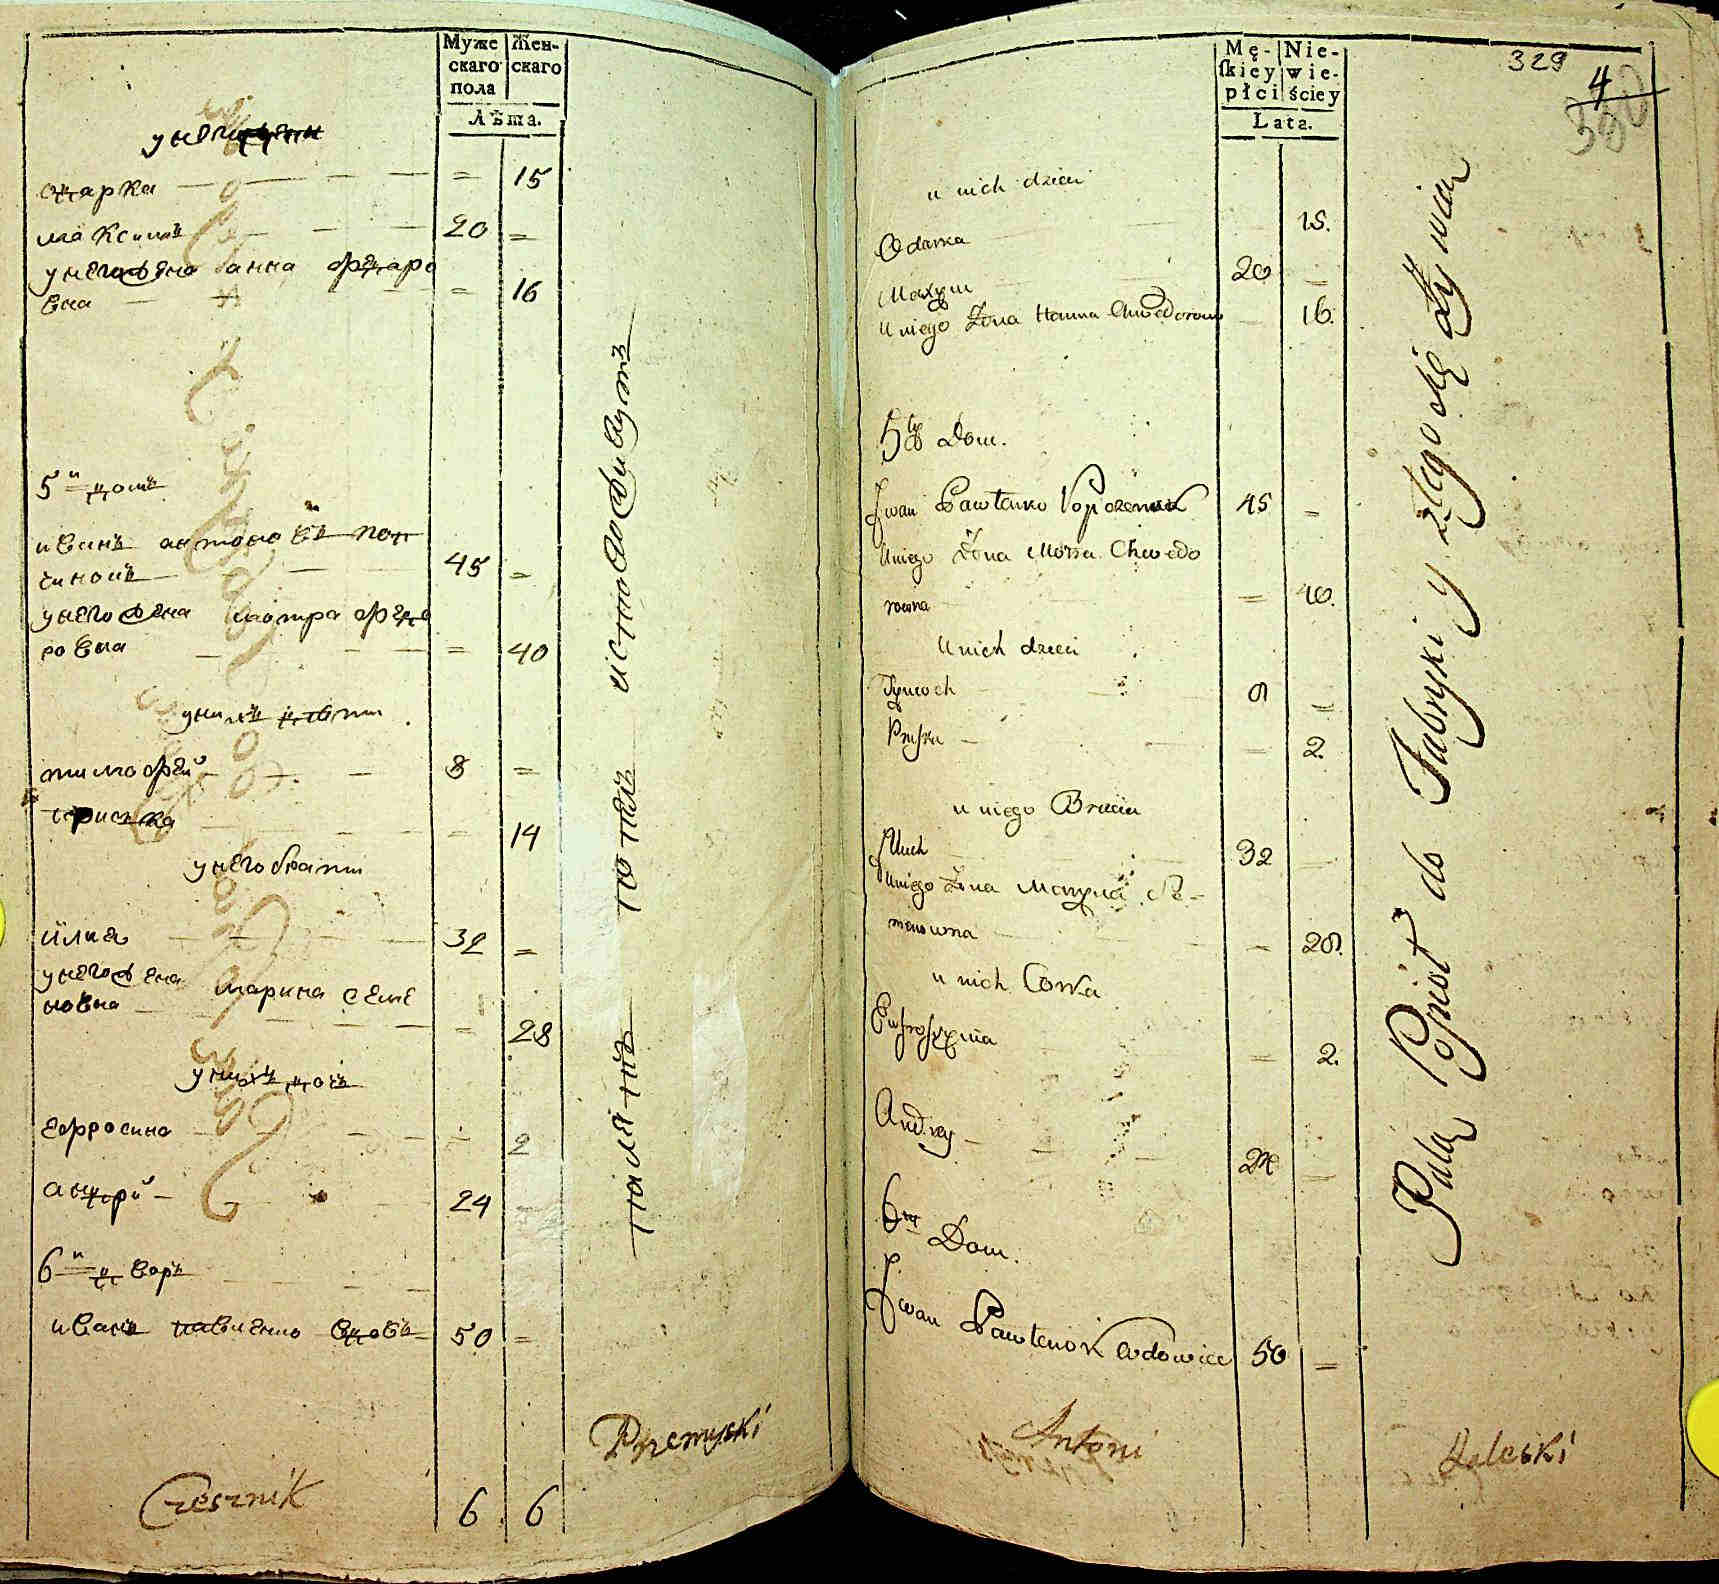 Муже
скаго
пола
Жен-
скаго
Лѣта.
одарка = 15
максимъ 20 =
унего жена анна федоро
вна = 16
5й домъ
иванъ антоновъ
45 =
унего жена мотра федо
ровна = 40
унихъ дѣти
тимофей 8 =
приська = 14
унего брати
илия 32 =
унего жена марина семе
новна = 28
унихъ дочь
ефросина = 2
андрей 24
6й дворъ
иванъ павленко вдовъ 50 =
Czesznik
6 6
Przemyski
Mę-
skiey
płci
Nie-
wie-
ściey
Lata.
329
4
u nich dzieci
Odarka 15.
Maxym 20 =
U niego Żona Hanna Chwedorow 16.
5ty Dom.
Jwan Pawłenko 45 =
U niego Żona Motra Chwedo
rowna = 40.
U nich dzieci
Tymoch 8 =
Pryska = 2.
u niego Bracia
Jlluch 32
U niego Żona Maryna Se-
menowna = 28.
u nich Corka
Eufrosyma = 2.
Andrey 24
6ty Dom.
Jwan Pawłenok Wdowiec 50 =
Palą Popioł do Fabryki y z tego się Żywią
Antoni
Zaleski